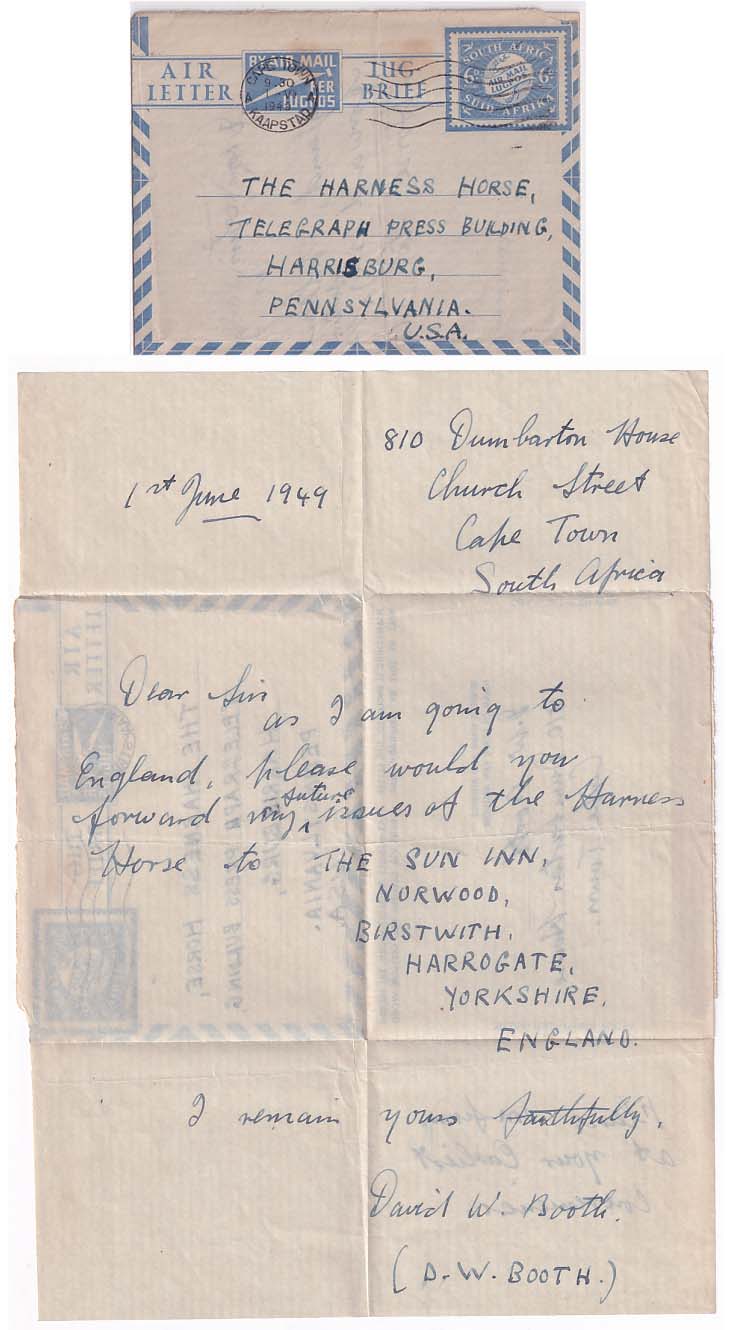 AIR LETTER
BY AIR MAIL
PER LUGPOS
LUG-BRIEF
CAPE TOWN
9 30
1949
KAAPSTAD
SOUTH AFRICA
6D AIR MAIL 6D
LUGPOS
SUID-AFRIKA
THE HARNESS HORSE,
TELEGRAPH PRESS BUILDING,
HARRISBURG,
PENNSYLVANIA.
U.S.A.
810 Dumbarton House
Church Street
Cape Town
South Africa
1st June 1949
Dear Sir
as I am going to
England, please would you
forward my future issues of the Harness
Horse to THE SUN INN,
NORWOOD,
BIRSTWITH,
HARROGATE,
YORKSHIRE,
ENGLAND.
I remain yours faithfully,
David W. Booth.
(D.W. BOOTH.)